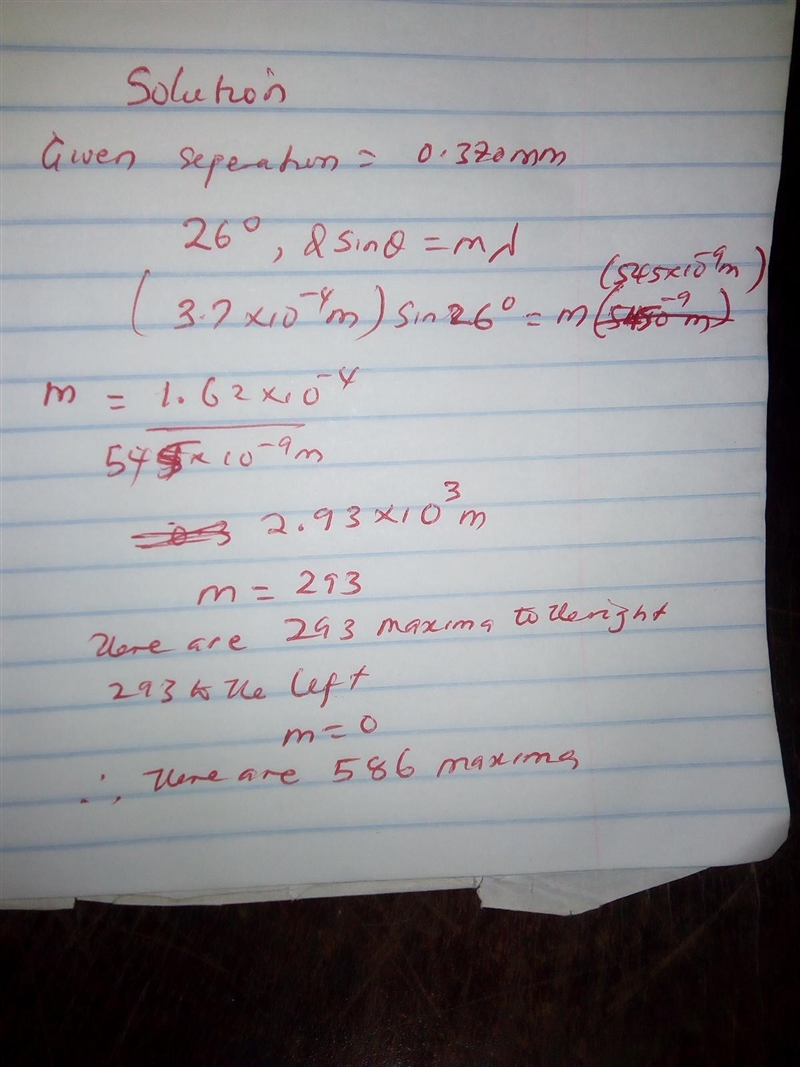 Solution
Given seperation = 0.370mm
26°, d sinθ = mλ
(545x10⁻⁹m)
(3.7 x10⁻⁴m) sin26° = m
m = 1.62 x10⁻⁴
545x10⁻⁹m
2.93 x10³m
m = 293
there are 293 maxima to the right
293 to the left
m = 0
∴ there are 586 maxima